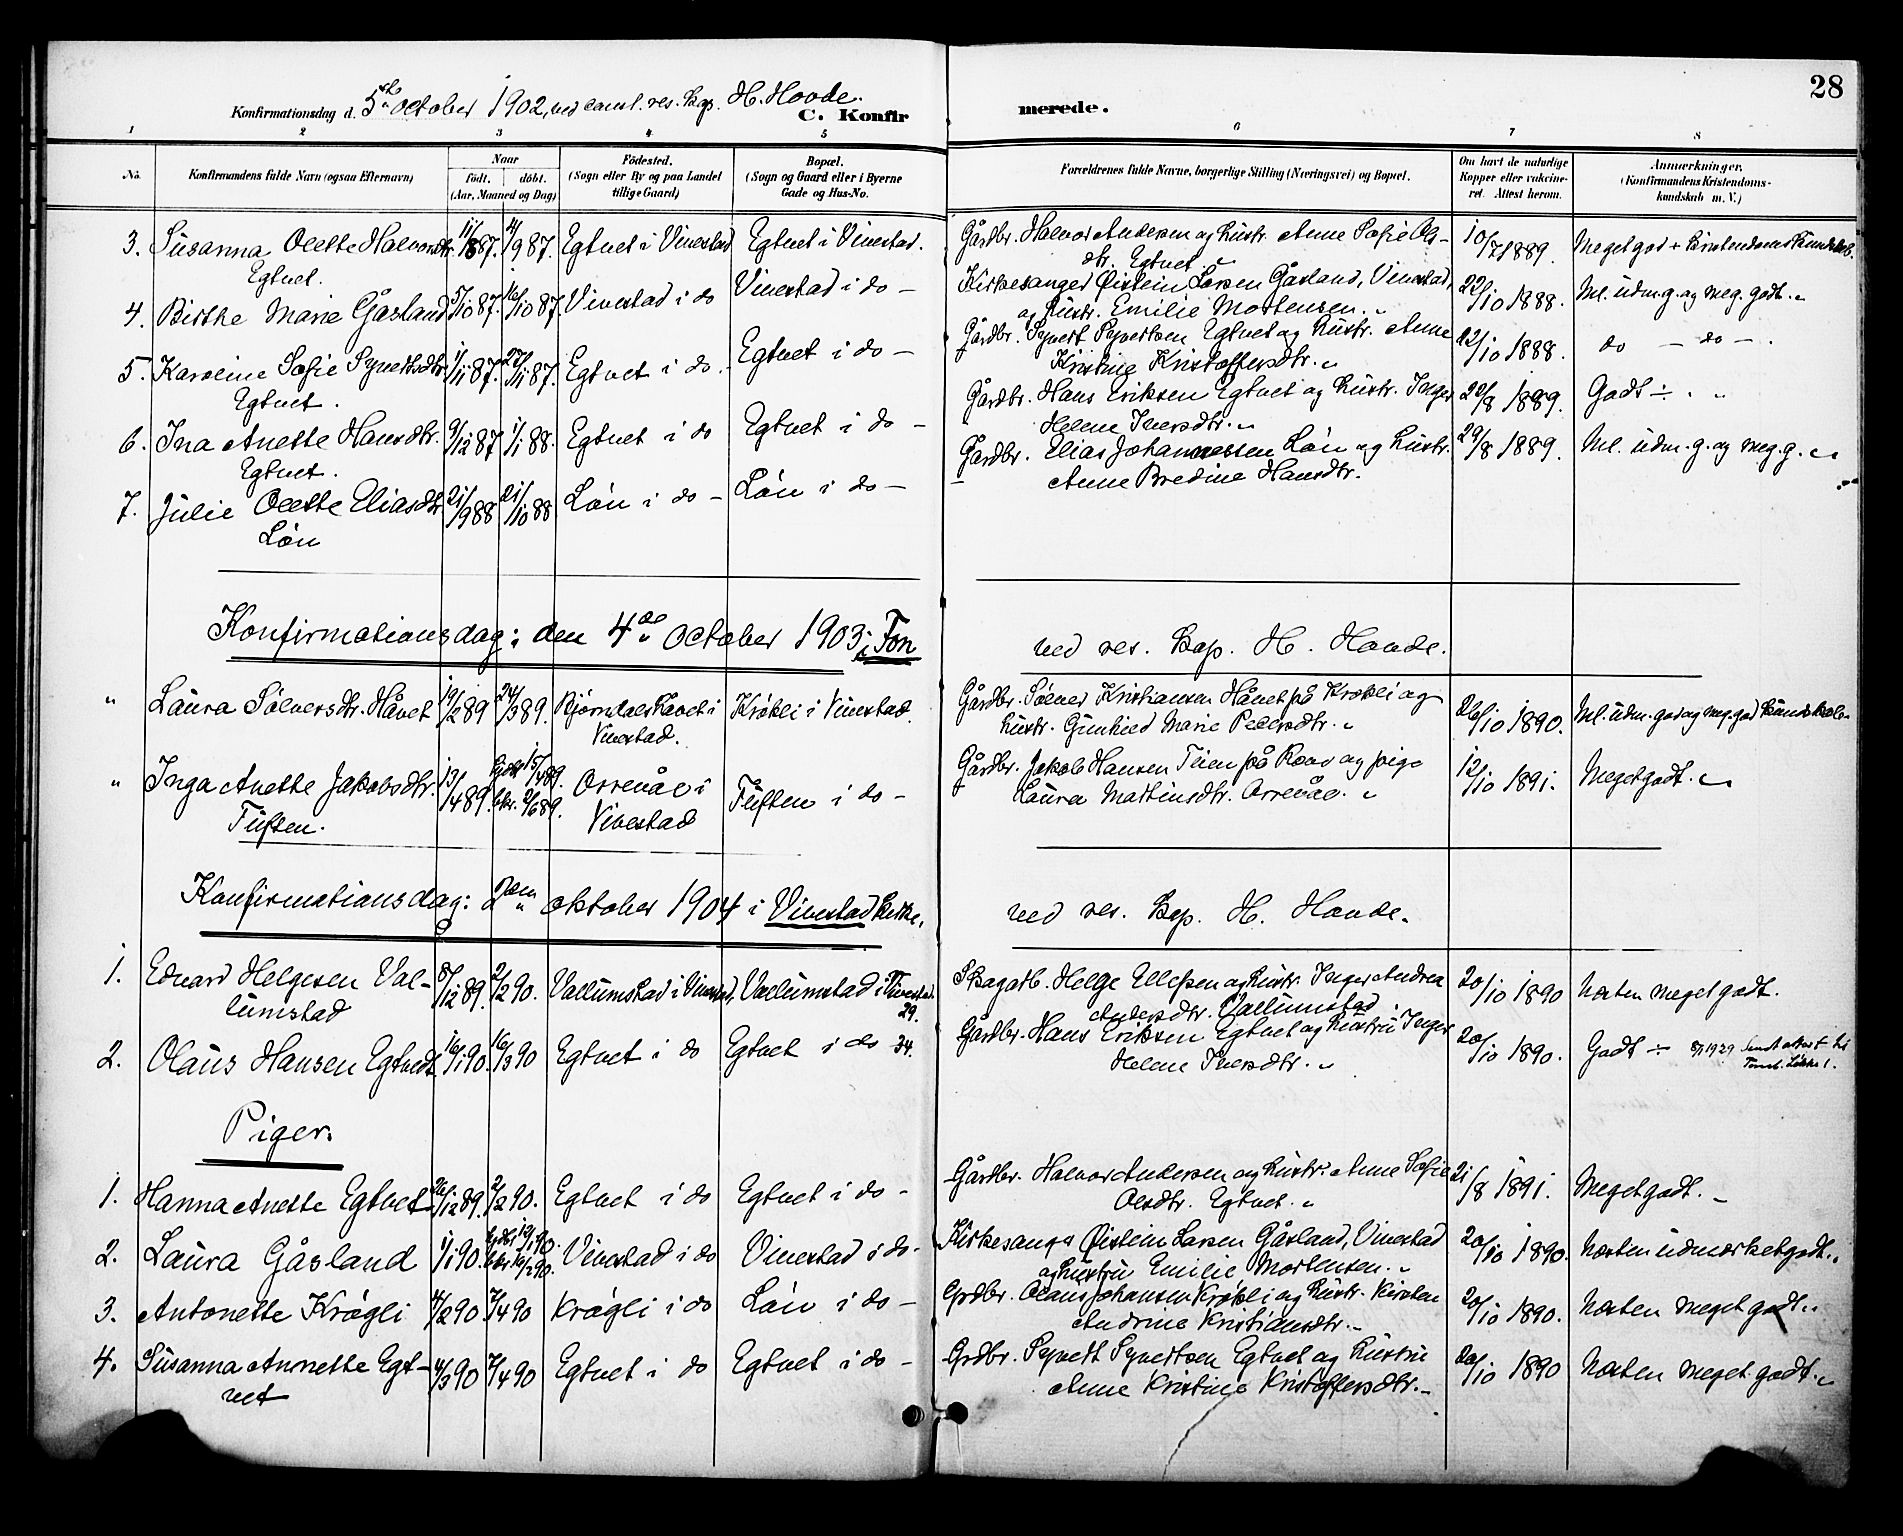 28
Konfirmationsdag d. 5te October 1902, ved const. res. Kap. H. Hovde.
C. Konfirmerede.
1 2 3 4 5 6 7 8
No. Konfirmandens fulde Navn (ogsaa Efternavn) Naar født. døbt. (Aar, Maaned og Dag) Fødested. (Sogn eller By og paa Landet tillige Gaard) Bopæl. (Sogn og Gaard eller i Byerne Gade og Hus-No. Forældrenes fulde Navne, borgerlige Stilling (Næringsvei) og Bopæl. Om havt de naturlige Kopper eller vakcineret. Attest herom. Anmærkninger. (Konfirmandens Kristendomskundskab m. V.)
3. Susanna Olette Halvorsdtr. 11/8 87. 11/9 87. Egtvet i Vivestad Egtvet i Vivestad. Gårdbr. Halvor Andersen og hustr. Anne Sofie Ols- 10/7 1889. Meget god + Kristendomskundskab.
Egtvet. dtr. Egtvet.
4. Birthe Marie Gåsland 5/10 87. 16/10 87. Vivestad i do Vivestad i do – Kirkesanger Øistein Larsen Gåsland, Vivestad, 22/10 1888. Ml. udm. g. og meg. godt.
og hustr. Emilie Mortensen.
5. Karoline Sofie Syvertsdtr. 1/11 87. 27/11 87. Egtvet i do. Egtvet i do – Gårdbr. Syvert Syvertsen Egtvet og hustr. Anne 22/10 1888. do – do – .
Egtvet. Kristine Kristoffersdtr.
6. Ina Anette Hansdtr. 9/12 87 1/1 88. Egtvet i do Egtvet i do – Gårdbr. Hans Eriksen Egtvet og hustr. Inger 22/8 1889. Godt ÷ .
Egtvet. Helene Iversdtr.
7. Julie Olette Eliasdtr. 21/9 88 21/10 88 Løn i do – Løn i do – Gårdbr. Elias Johannessen Løn og hustr. 29/8 1889. Ml. udm. g. og meg. g.
Løn Anne Bredine Hansdtr.
Konfirmationsdag: den 4de October 1903 i Fon ved res. Kap. H. Hovde.
" Laura Sølversdtr. Håvet 19/2 89 24/3 89. Bjørndalshavet i Krøkli i Vivestad. Gårdbr. Sølver Kristiansen Håvet på Krøkli og 26/10 1890. Ml. udm. god og meg. god Kundskab.
Vivestad. hustr. Gunhild Marie Pedersdtr.
" Inga Anette Jakobsdtr. 13/1 89. hjdbt 15/4 89. Orrevål i Tuften i do – Gårdbr. Jakob Hansen Teien på Raav og pige 12/10 1891. Meget godt.
Tuften. bkr. 2/6 89. Vivestad Laura Martinsdtr. Orrevål.
Konfirmationsdag: 2den oktober 1904 i Vivestad kirke. ved res. Kap. H. Hovde.
1. Edvard Helgesen Val- 8/12 89. 2/2 90. Vallumstad i Vivestad, Vallumstad i Vivestad. Helge Ellefsen og hustr. Inger Andrea 20/10 1890 Næsten meget godt.
lumstad 29. Andersdtr. Vallumstad
2. Olaus Hansen Egtvedt 16/1 90. 16/3 90 Egtvet i do Egtvet i do 34. Gårdbr. Hans Eriksen Egtvet og hustru Inger 20/10 1890. Godt ÷ 8/7 1929 Sendt attest til
Helene Iversdtr.
Piger.
1. Hanna Anette Egtvet 26/12 89. 2/2 90. Egtvet i do Egtvet i do – Gårdbr. Halvor Andersen og hustr. Anne Sofie 21/8 1891. Meget godt. –
Olsdtr. Egtvet.
2. Laura Gåsland 1/1 90. hjdbt 19/1 90. Vivestad i do Vivestad i do – Kirkesangs Øistein Larsen Gåsland, Vivestad 20/10 1890. Næsten udmærket godt.
og hustru Emilie Mortensen.
3. Antonette Krøgli 4/2 90 7/4 90 Krøgli i do Løn i do – Grdbr. Olaus Johansen Krøkli og hustr. Kirsten 20/10 1890. Næsten meget godt.
Andrine Kristiansdtr. –
4. Susanna Annette Egt- 4/3 90 7/4 90 Egtvet i do Egtvet i do – Grdbr. Syvert Syvertsen Egtvet og hustru 20/10 1890 Næsten meget godt.
vet Anne Kristine Kristoffersdtr. –